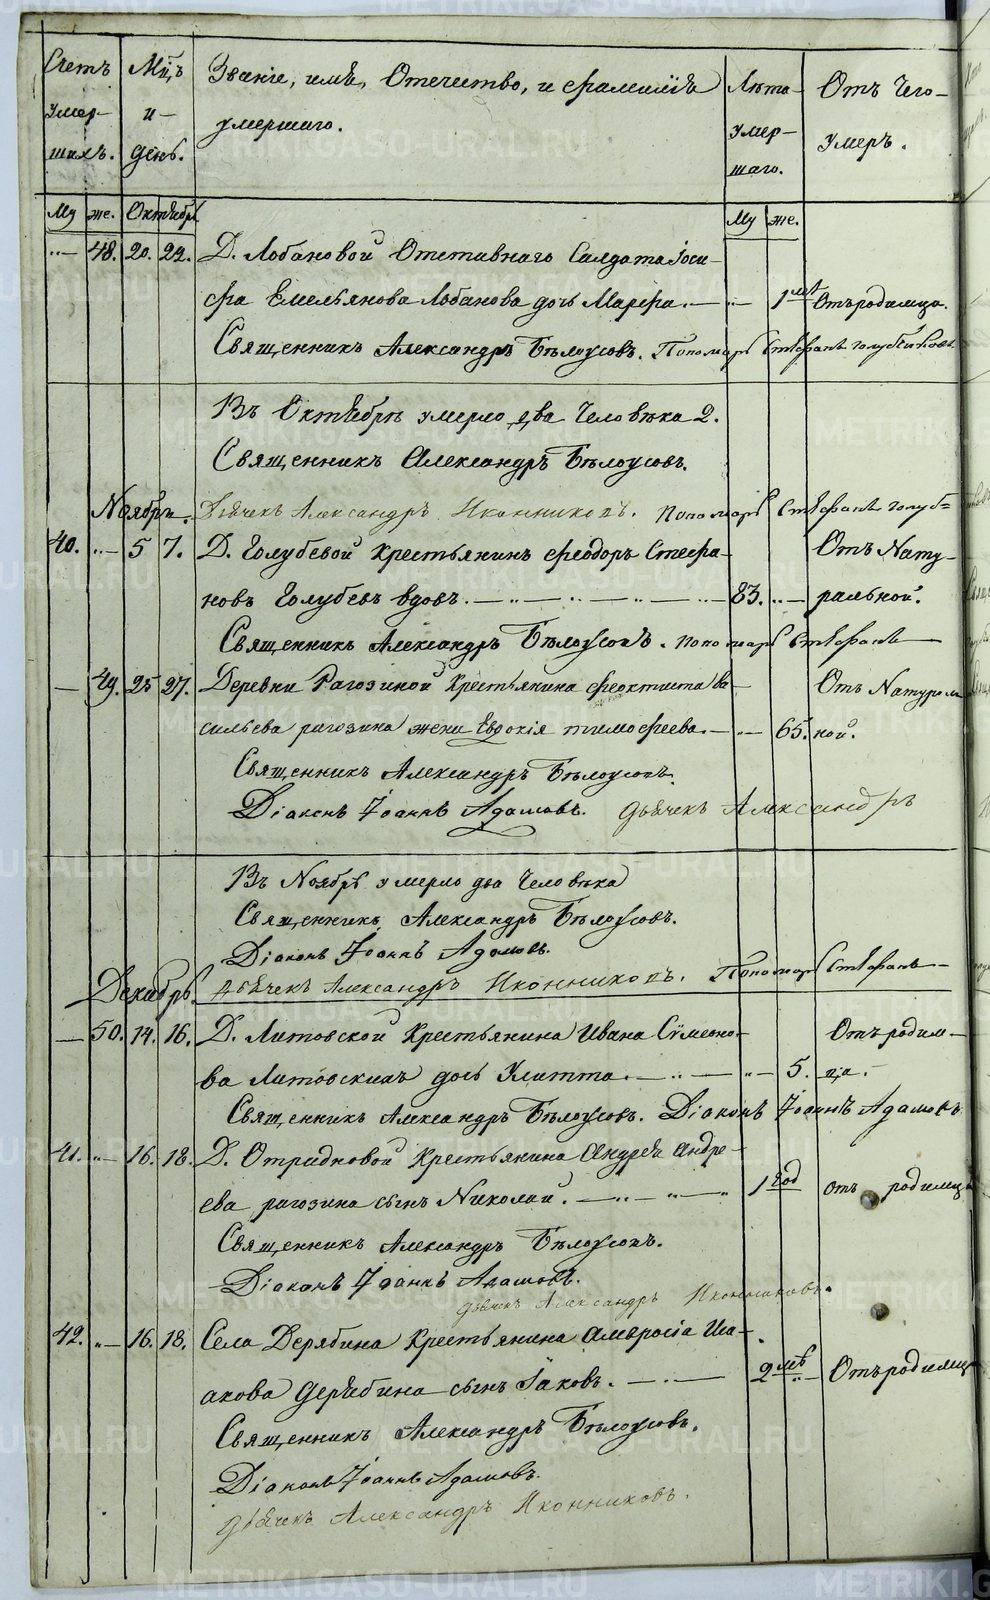 Счетъ Мцъ Званіе, имѣ, Отечество, и фамиліѣ Лѣта Отъ Чего
умер- и- умершаго. умер- умеръ.
шихъ. день. шаго.
Му же. Октябрь Му же.
"— 48. 20. 22. Д. Лобановой Отставнаго Салдата Іоси-
фа Емельянова Лобанова дочь Марфа. — "— 1 лѣ Отъ родимца.
Священникъ Александръ Бѣлоусовъ. Пономарь Стефанъ Голубчиковъ
Въ Октябрѣ умерло два Человѣка 2.
Священникъ Александръ Бѣлоусовъ.
Ноябрь. Дьячекъ Александръ Иконниковъ. Пономарь Стефанъ Голуб=
40. "— 5 7. Д. Голубевой Крестьянинъ Феодоръ Стефа- Отъ Нату-
новъ Голубевъ вдовъ. — " — " — " — 83. "— ральной.
Священникъ Александръ Бѣлоусовъ. Пономарь Стефанъ
— 49. 25 27. Деревни Рагозиной Крестьянина Феоктиста Ва- Отъ Натурал
сильева рагозина жена Евдокія тимофеева. — "— 65. ной.
Священникъ Александръ Бѣлоусовъ.
Діаконъ Іоаннъ Адамовъ. Дьячекъ Александръ
Въ Ноябрѣ умерло два Человѣка
Священникъ Александръ Бѣлоусовъ.
Діаконъ Іоаннъ Адамовъ.
Декабрь. Дьячекъ Александръ Иконниковъ. Пономарь Стефанъ
— 50. 14. 16. Д. Литовской Крестьянина Ивана Сѵмеоно- Отъ родим-
ва Литовскихъ дочь Улитта. — " — "— 5. ца.
Священникъ Александръ Бѣлоусовъ. Діаконъ Іоаннъ Адамовъ
41. "— 16. 18. Д. Отрадновой Крестьянина Андрея Андре-
ева рагозина сынъ Николай. — " — " — " 1 год отъ родимца
Священникъ Александръ Бѣлоусовъ.
Діаконъ Іоаннъ Адамовъ.
Дьячекъ Александръ Иконниковъ.
42. "— 16. 18. Села Дерябина Крестьянина Амвросія Иса-
акова Дерябина сынъ Іаковъ. — " — 2 лѣ "— Отъ родимца
Священникъ Александръ Бѣлоусовъ.
Діаконъ Іоаннъ Адамовъ.
Дьячекъ Александръ Иконниковъ.
METRIKI.GASO-URAL.RU